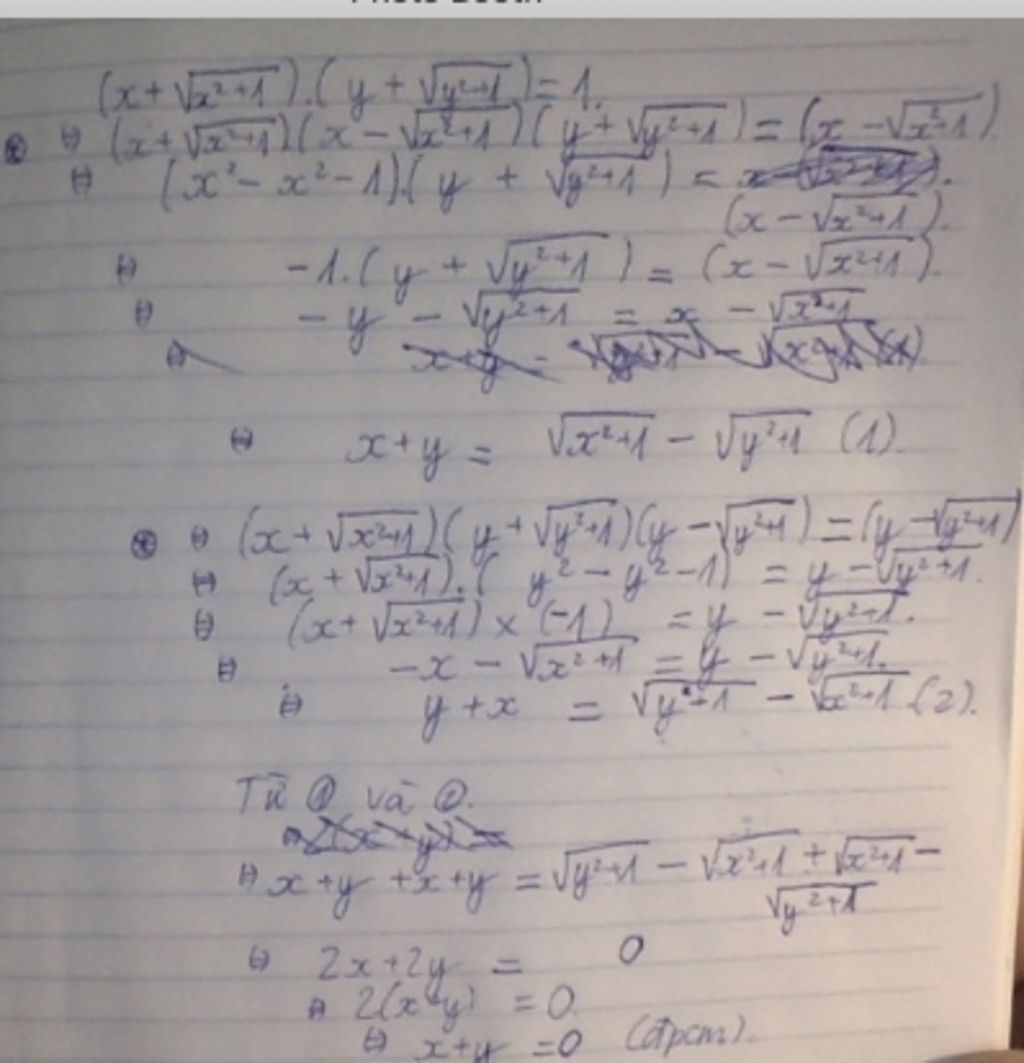 (x + √(x²+1)).(y + √(y²+1)) = 1.
⊛ ⇔ (x + √(x²+1))(x − √(x²+1))(y + √(y²+1)) = (x − √(x²+1)).
⇔ (x² − x² − 1).(y + √(y²+1)) =
(x − √(x²+1)).
⇔ −1.(y + √(y²+1)) = (x − √(x²+1)).
⇔ − y − √(y²+1) = x − √(x²+1)
⇔ x + y = √(x²+1) − √(y²+1) (1).
⊛ ⇔ (x + √(x²+1))(y + √(y²+1))(y − √(y²+1)) = (y − √(y²+1))
⇔ (x + √(x²+1)).(y² − y² − 1) = y − √(y²+1).
⇔ (x + √(x²+1)) × (−1) = y − √(y²+1).
⇔ −x − √(x²+1) = y − √(y²+1).
⇔ y + x = √(y²+1) − √(x²+1) (2).
Từ ① và ②.
⇔ x + y + x + y = √(y²+1) − √(x²+1) + √(x²+1) −
√(y²+1)
⇔ 2x + 2y = 0
⇔ 2(x + y) = 0.
⇔ x + y = 0 (đpcm).